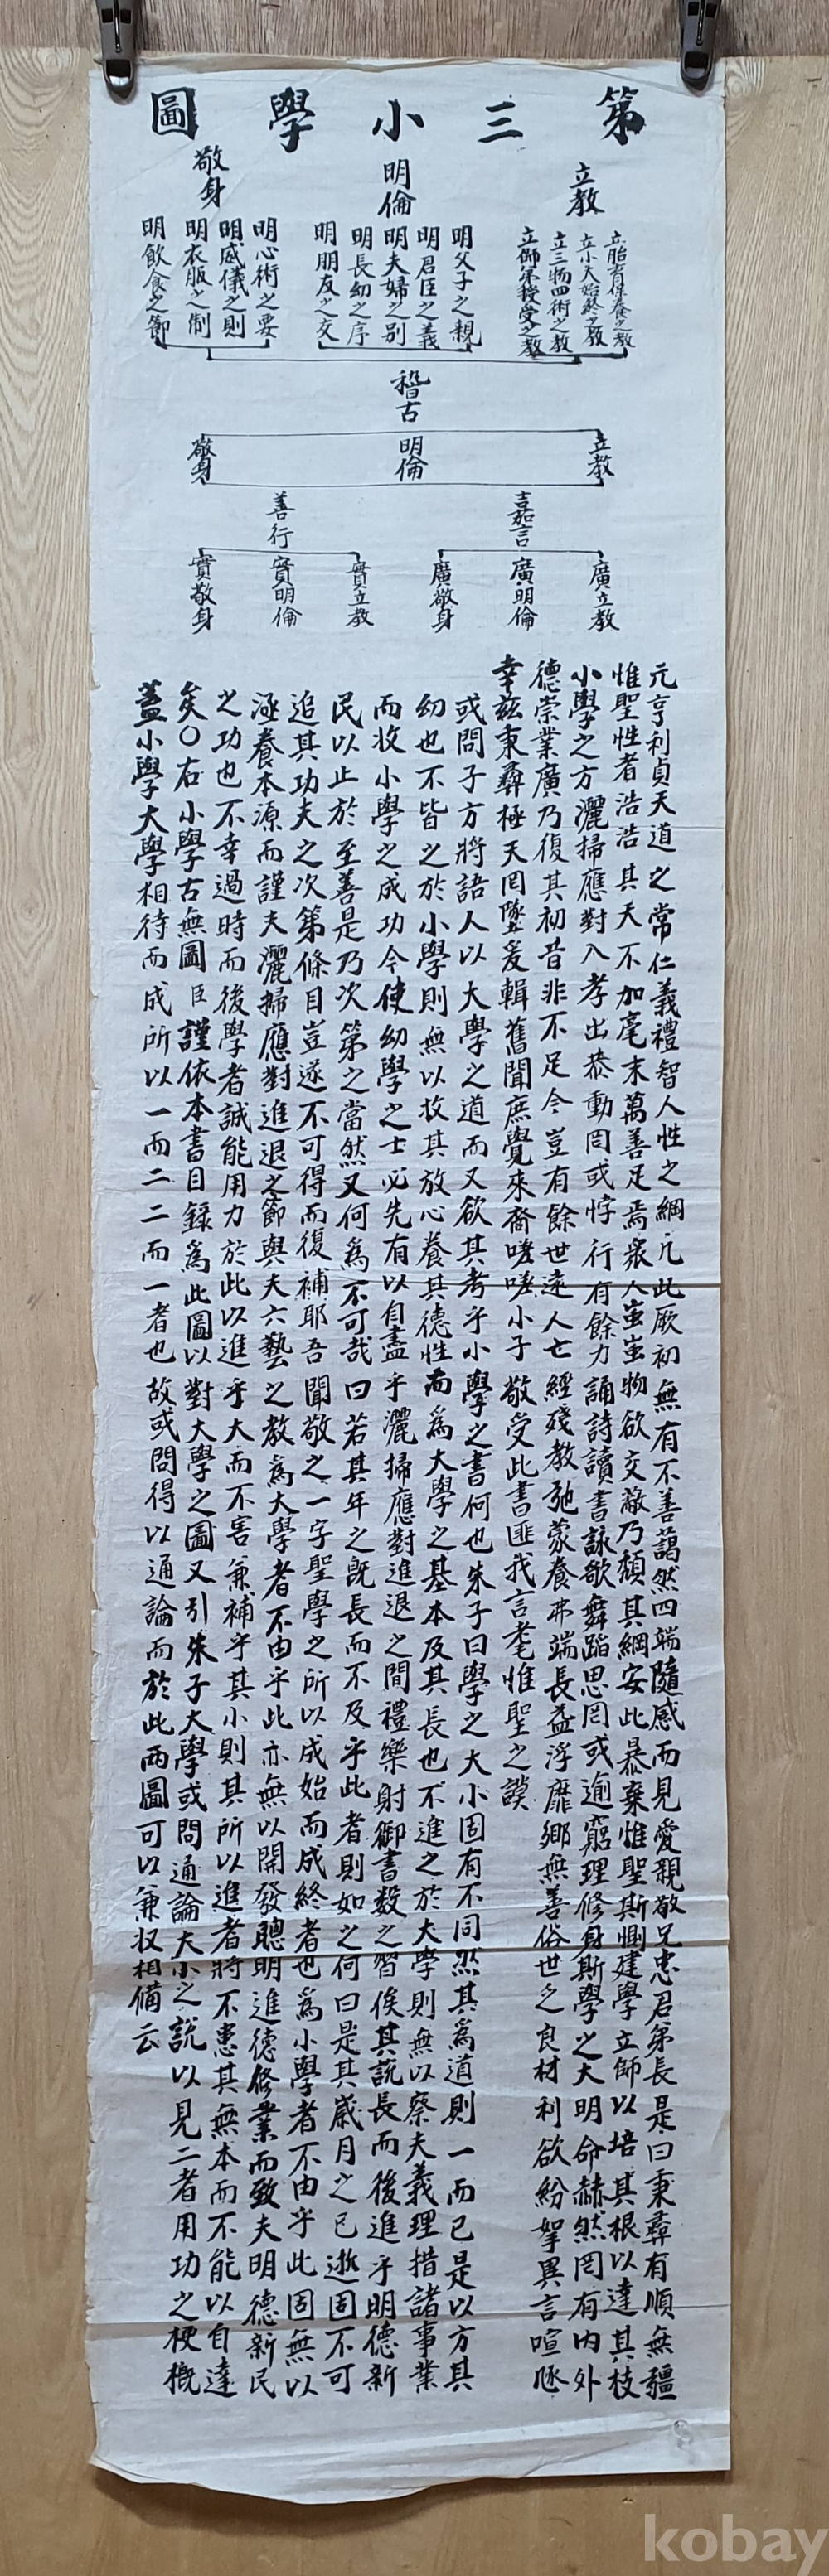 第三小學圖
立教
明倫
敬身
立胎孕保養之教
立小大始終之教
立三物四術之教
立師弟授受之教
明父子之親
明君臣之義
明夫婦之別
明長幼之序
明朋友之交
明心術之要
明威儀之則
明衣服之制
明飲食之節
稽古
立教
明倫
敬身
嘉言
善行
廣立教
廣明倫
廣敬身
實立教
實明倫
實敬身
元亨利貞天道之常仁義禮智人性之綱凡此厥初無有不善藹然四端隨感而見愛親敬兄忠君弟長是曰秉彝有順無疆
惟聖性者浩浩其天不加毫末萬善足焉衆人蚩蚩物欲交蔽乃頹其綱安此暴棄惟聖斯惻建學立師以培其根以達其枝
小學之方灑掃應對入孝出恭動罔或悖行有餘力誦詩讀書詠歌舞蹈思罔或逾窮理修身斯學之大明命赫然罔有內外
德崇業廣乃復其初昔非不足今豈有餘世遠人亡經殘教弛蒙養弗端長益浮靡鄉無善俗世乏良材利欲紛挐異言喧豗
幸玆秉彝極天罔墜爰輯舊聞庶覺來裔嗟嗟小子敬受此書匪我言耄惟聖之謨
或問子方將語人以大學之道而又欲其考乎小學之書何也朱子曰學之大小固有不同然其爲道則一而已是以方其
幼也不皆之於小學則無以收其放心養其德性而爲大學之基本及其長也不進之於大學則無以察夫義理措諸事業
而收小學之成功今使幼學之士必先有以自盡乎灑掃應對進退之間禮樂射御書數之習俟其旣長而後進乎明德新
民以止於至善是乃次第之當然又何爲不可哉曰若其年之旣長而不及乎此者則如之何曰是其歲月之已逝固不可
追其功夫之次第條目豈遂不可得而復補耶吾聞敬之一字聖學之所以成始而成終者也爲小學者不由乎此固無以
涵養本源而謹夫灑掃應對進退之節與夫六藝之教爲大學者不由乎此亦無以開發聰明進德修業而致夫明德新民
之功也不幸過時而後學者誠能用力於此以進乎大而不害兼補乎其小則其所以進者將不患其無本而不能以自達
矣○右小學古無圖臣謹依本書目錄爲此圖以對大學之圖又引朱子大學或問通論大小之說以見二者用功之梗槪
蓋小學大學相待而成所以一而二二而一者也故或問得以通論而於此兩圖可以兼收相備云
kobay